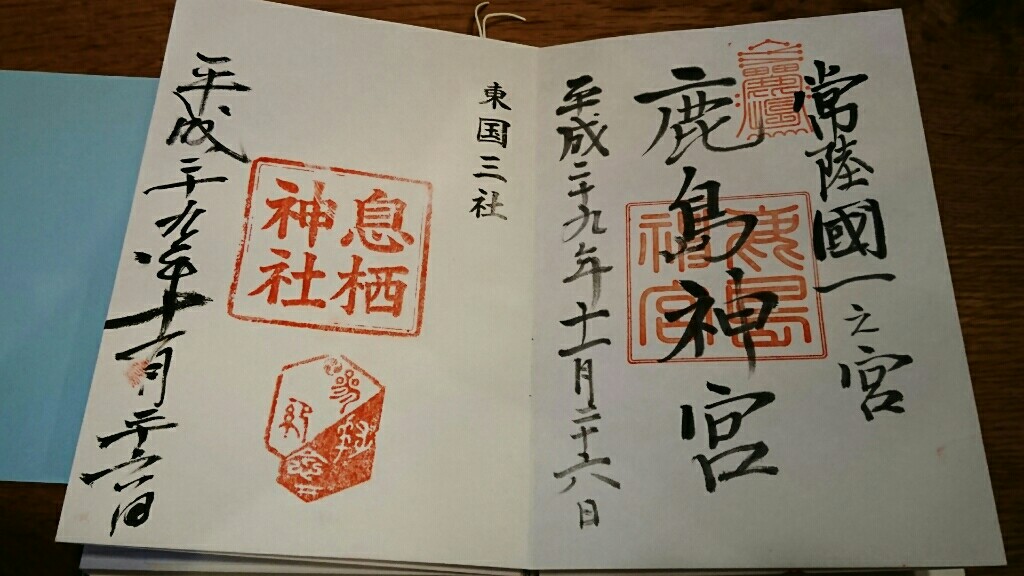 常陸國一之宮
鹿島神宮
鹿島
神宮
平成二十九年十一月二十六日
東国三社
息栖
神社
参拝
記念
平成二十九年十一月二十六日